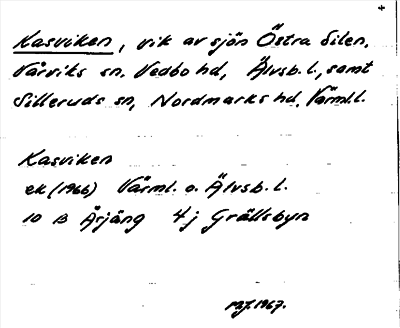 Kasviken, vik av sjön Östra Silen,
Vårviks sn, Vedbo hd, Älvsb. l., samt
Silleruds sn, Nordmarks hd, Värml. l.
Kasviken
ek (1966) Värml. o. Älvsb. l.
10 B Årjäng 4 j Grällsbyn
1967.